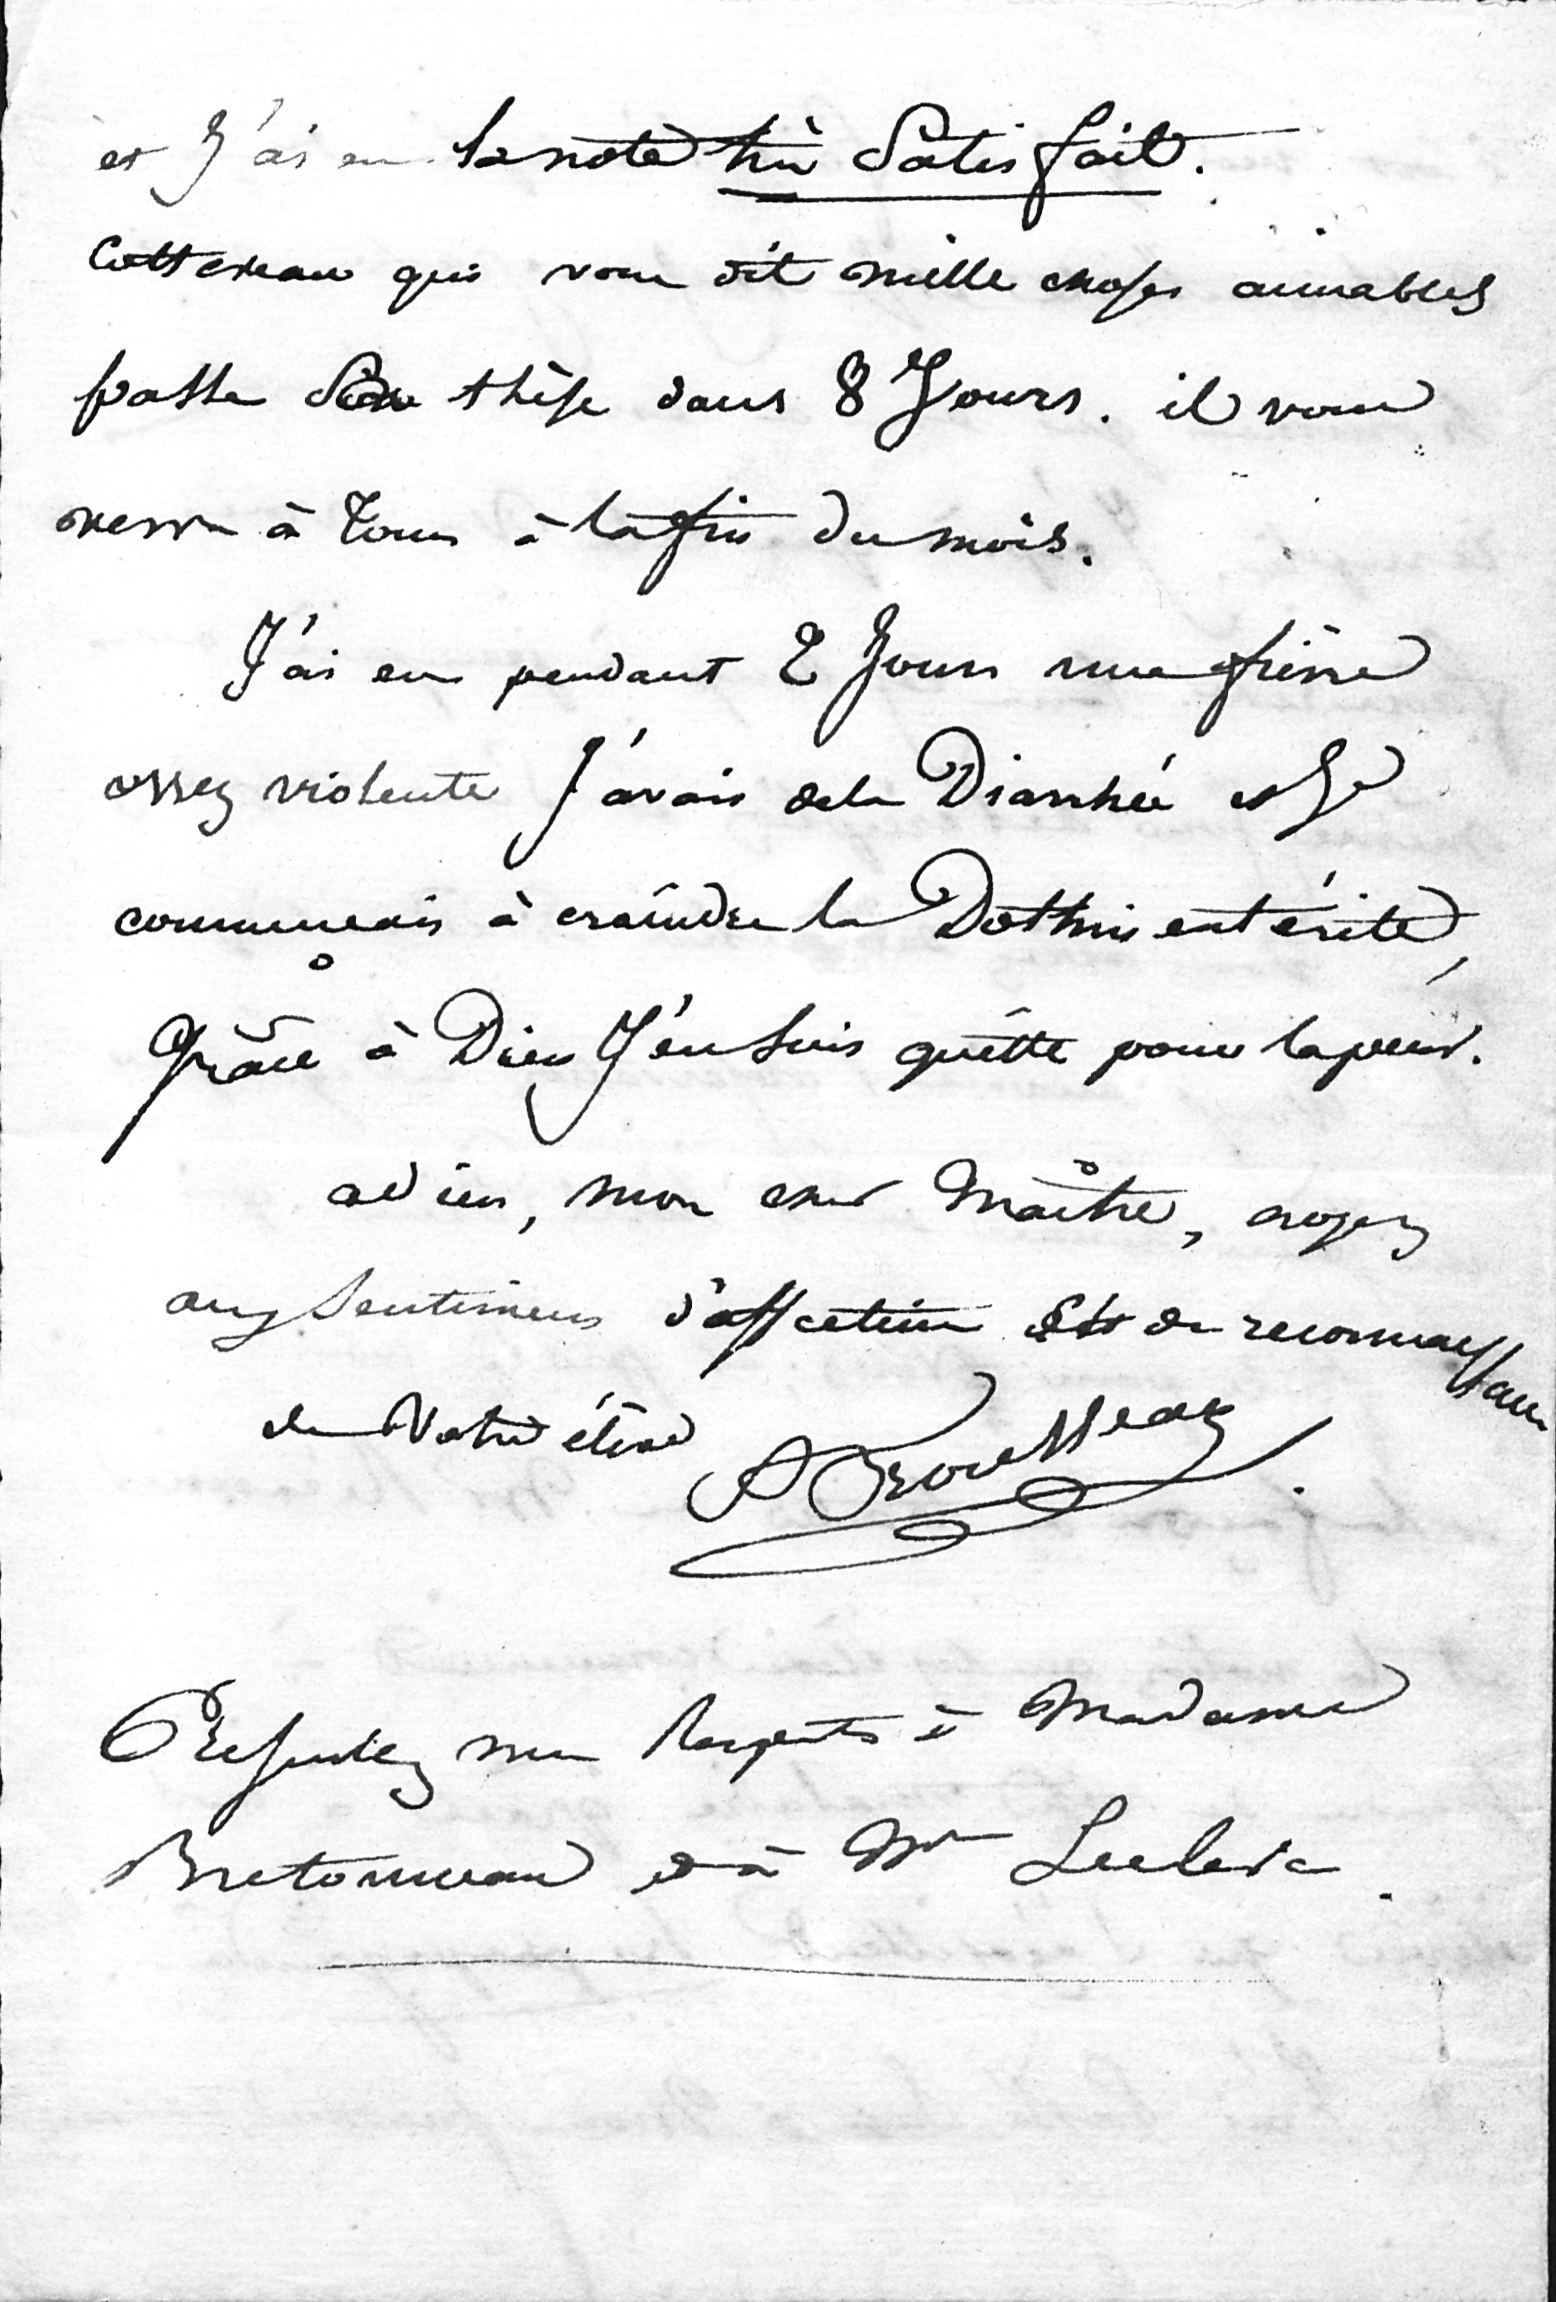 et J'ai eu la note très Satisfait.
Cottereau qui vous dit mille choses aimables
passe Son thèse dans 8 Jours. il vous
verra à Tours à la fin du mois.
J'ai eu pendant 2 Jours une fièvre
assez violente J'avais de la Diarrhée et Je
commençais à craindre la Dothinentérite,
Grâce à Dieu J'en suis quitte pour la peur.
adieu, mon cher Maître, croyez
aux sentimens d'affection et de reconnaissance
de Votre élève ATrousseau.
Présentez mes respects à Madame
Bretonneau et à Mr Leclerc.